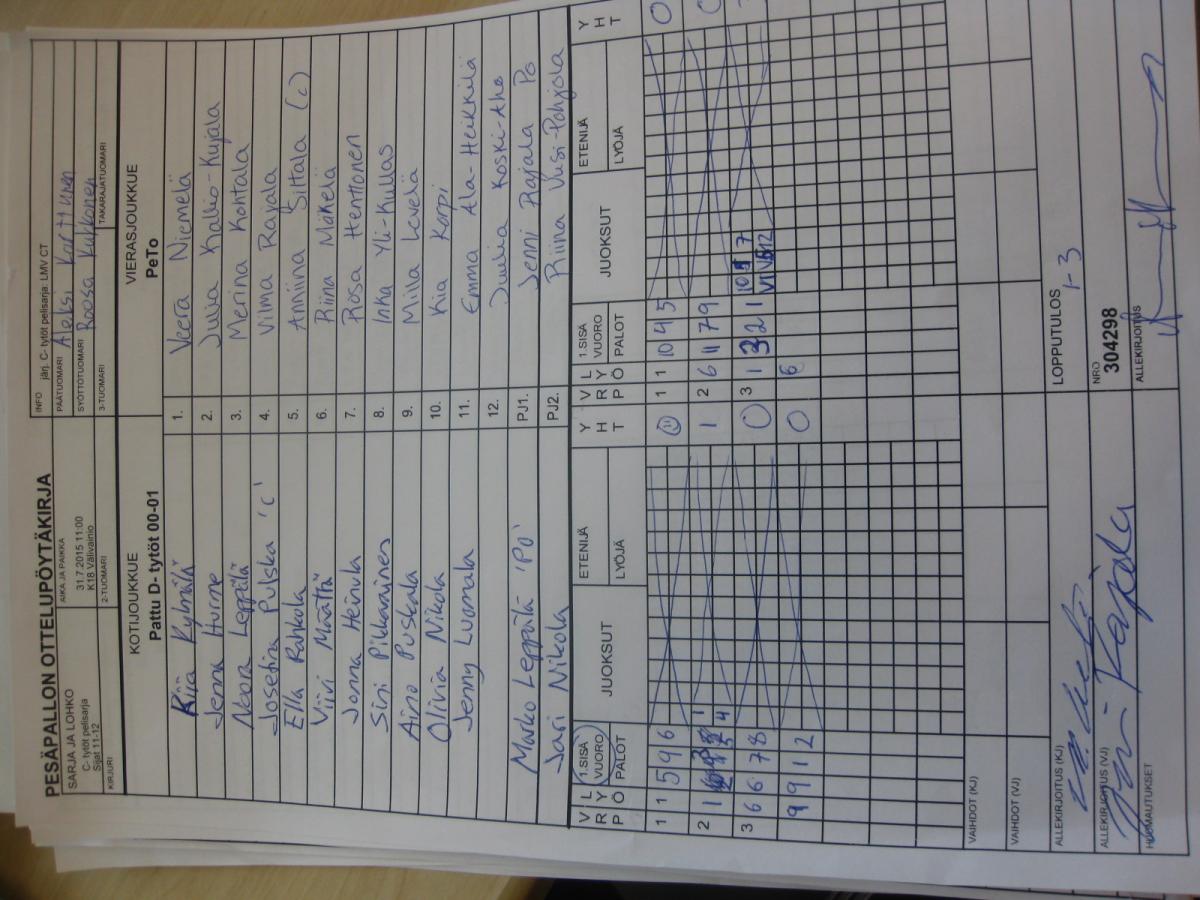 PESÄPALLON OTTELUPÖYTÄKIRJA
SARJA JA LOHKO
C- tytöt pelisarja
Sijat 11-12
AIKA JA PAIKKA
31.7.2015 11:00
K18 Välivainio
INFO järj. C- tytöt pelisarja: LMV CT
PÄÄTUOMARI Aleksi Karttunen
SYÖTTÖTUOMARI Roosa Kukkonen
KIRJURI 2-TUOMARI 3-TUOMARI TAKARAJATUOMARI
KOTIJOUKKUE VIERASJOUKKUE
Pattu D- tytöt 00-01 PeTo
Riia Kylmälä 1. Veera Niemelä
Jenna Hurme 2. Julia Kallio-Kujala
Noora Leppälä 3. Merina Kontala
Josefina Pulska 'C' 4. Vilma Rajala
Ella Rahkola 5. Anniina Siltala (c)
Viivi Määttä 6. Riina Mäkelä
Jonna Heinula 7. Rosa Henttonen
Sini Pikkarainen 8. Inka Yli-Kullas
Aino Puskala 9. Milla Levelä
Olivia Nikola 10. Kia Korpi
Jenny Luomala 11. Emma Ala-Heikkilä
12. Juulia Koski-Aho
Marko Leppälä 'PJ' PJ1. Jenni Rajala PJ
Jari Nikola PJ2. Riina Uusi-Pohjola
V R P L Y Ö 1.SISÄ VUORO PALOT JUOKSUT ETENIJÄ LYÖJÄ Y H T V R P L Y Ö 1.SISÄ VUORO PALOT JUOKSUT ETENIJÄ LYÖJÄ Y H T
1 1 5 9 6 0 1 1 10 4 5 0
2 1 1 2 6 11 7 9
3 6 6 7 8 0 3 1 3 2 1
9 9 1 2 0 6
VAIHDOT (KJ)
VAIHDOT (VJ)
ALLEKIRJOITUS (KJ) LOPPUTULOS 1-3
ALLEKIRJOITUS (VJ) NRO
304298
HUOMAUTUKSET ALLEKIRJOITUS